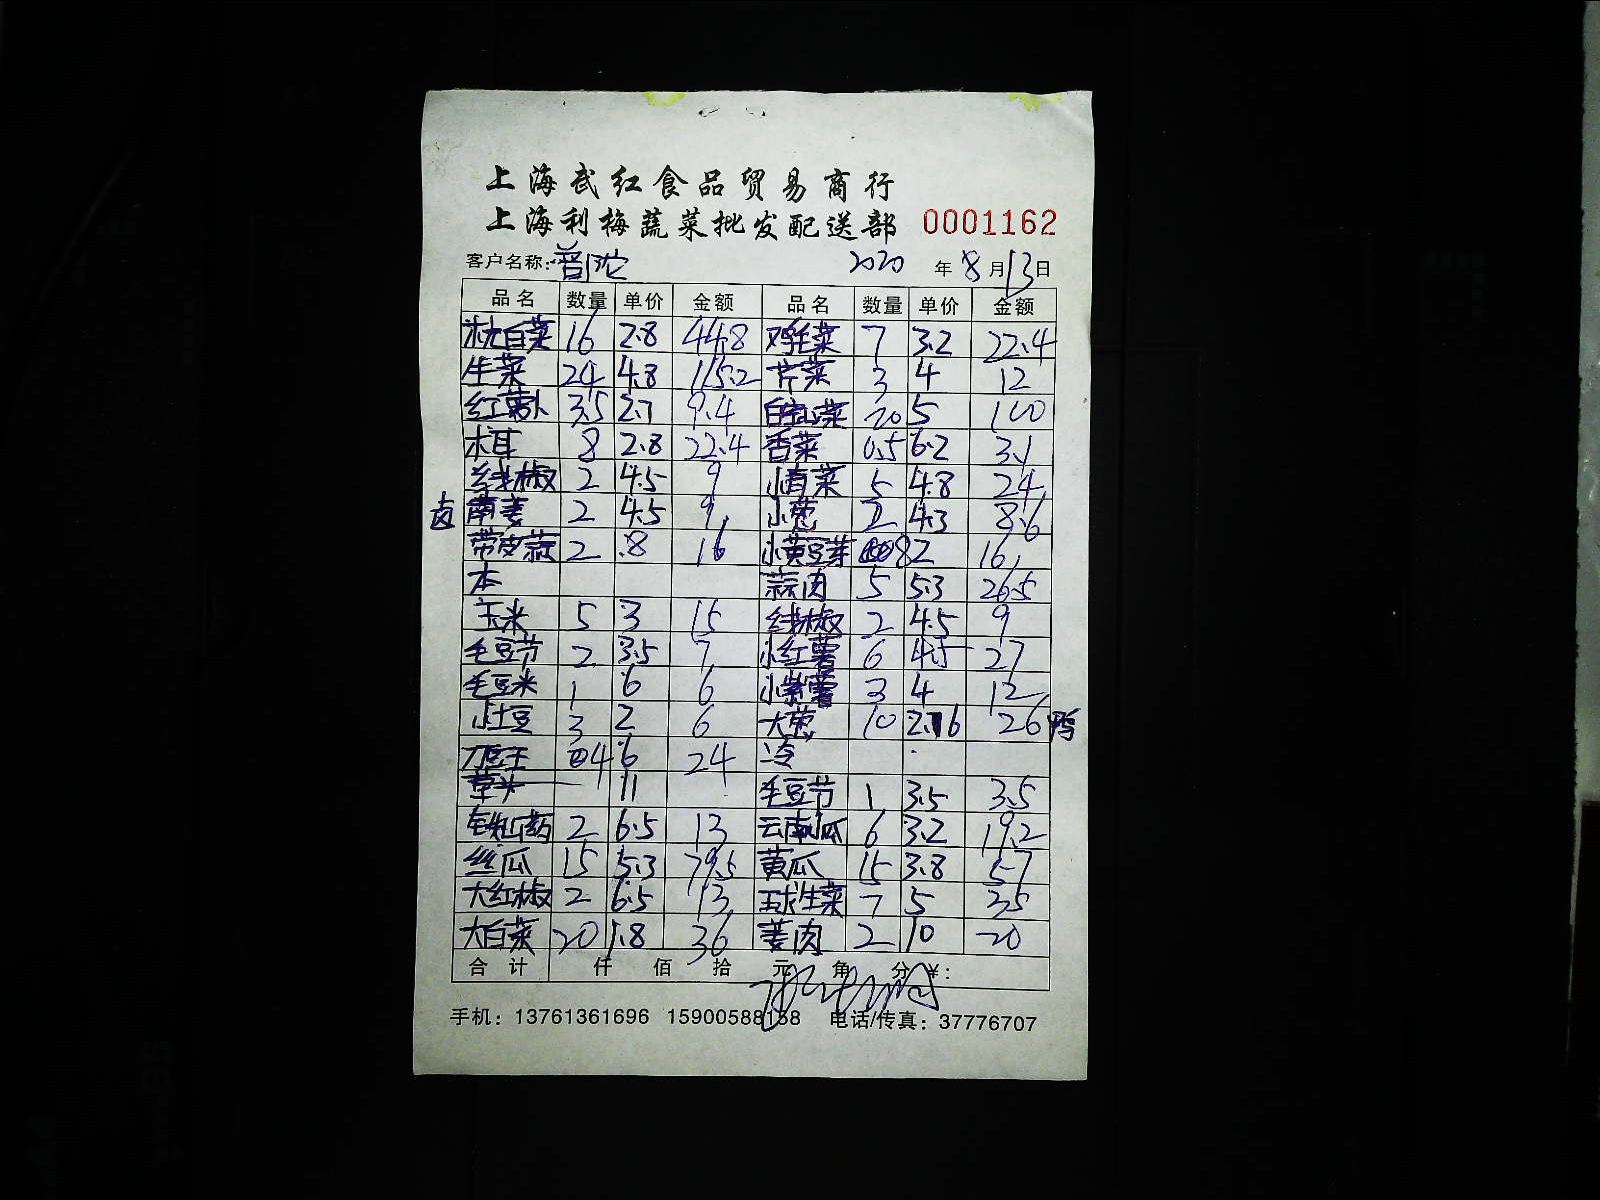 上海武红食品贸易商行
上海利梅蔬菜批发配送部 0001162
客户名称:普陀 2020 年 8 月 13 日
品名 数量 单价 金额 品名 数量 单价 金额
白菜 16 2.8 44.8 鸡毛菜 7 3.2 22.4
生菜 24 4.8 115.2 芹菜 3 4 12
红萝卜 3.5 2.7 9.4 菜 20 5 100
木耳 8 2.8 22.4 香菜 0.5 6.2 3.1
线椒 2 4.5 9 小青菜 5 4.8 24
卤 南姜 2 4.5 9 小葱 2 4.3 8.6
带皮蒜 2 8 16 小黄豆芽 8 2 16
本 蒜肉 5 5.3 26.5
玉米 5 3 15 线椒 2 4.5 9
毛豆节 2 3.5 7 小红薯 6 4.5 27
毛豆米 1 6 6 小紫薯 3 4 12
小土豆 3 2 6 大葱 10 2.6 26 鸭
刀豆王 4 6 24 冷
草头 11 毛豆节 1 3.5 3.5
铁山药 2 6.5 13 云南小瓜 6 3.2 19.2
丝瓜 15 5.3 79.5 黄瓜 15 3.8 57
大红椒 2 6.5 13 球生菜 7 5 35
大白菜 20 1.8 36 姜肉 2 10 20
合计 仟 佰 拾 元 角 分 ¥:
手机: 13761361696 15900588158 电话/传真: 37776707